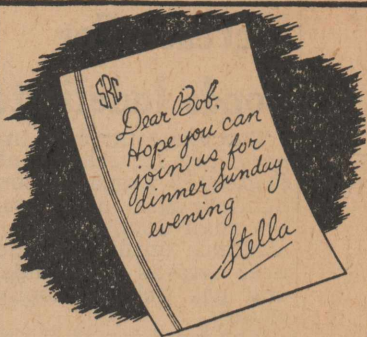 SRC
Dear Bob,
Hope you can
join us for
dinner Sunday
evening
Stella